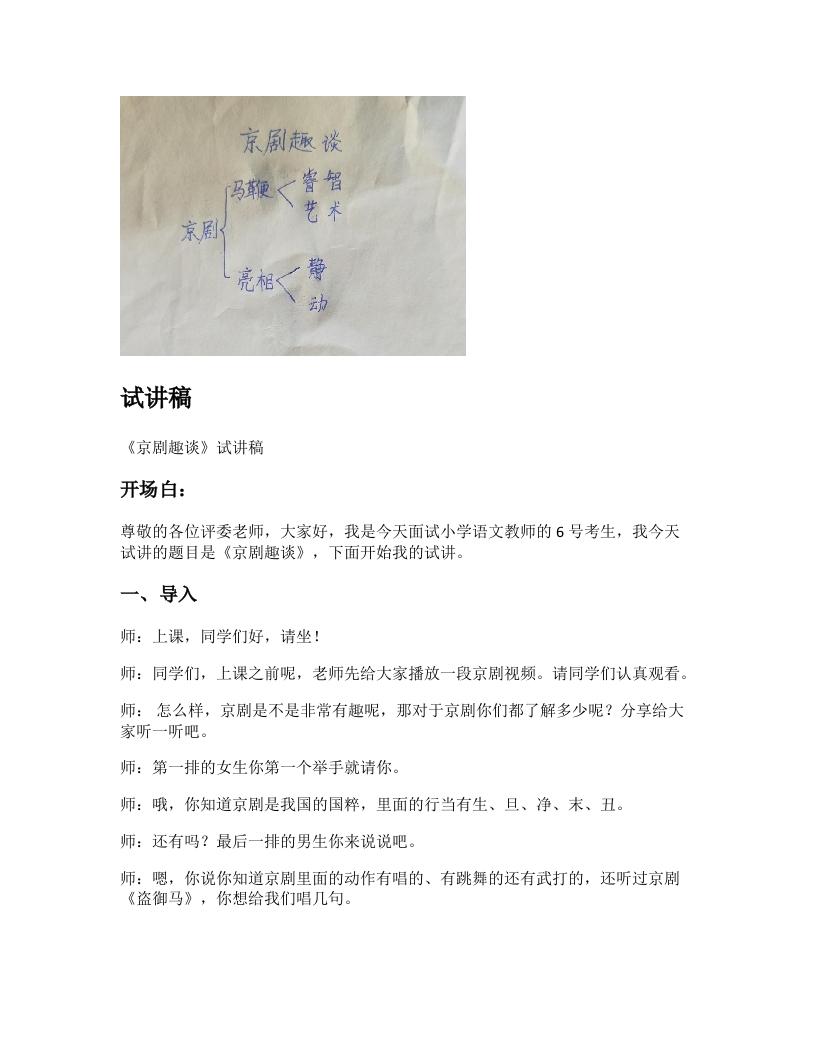 京剧趣谈
马鞭
睿智
艺术
京剧
亮相
静
动
试讲稿
《京剧趣谈》试讲稿
开场白：
尊敬的各位评委老师，大家好，我是今天面试小学语文教师的 6 号考生，我今天
试讲的题目是《京剧趣谈》，下面开始我的试讲。
一、导入
师：上课，同学们好，请坐！
师：同学们，上课之前呢，老师先给大家播放一段京剧视频。请同学们认真观看。
师： 怎么样，京剧是不是非常有趣呢，那对于京剧你们都了解多少呢？分享给大
家听一听吧。
师：第一排的女生你第一个举手就请你。
师：哦，你知道京剧是我国的国粹，里面的行当有生、旦、净、末、丑。
师：还有吗？最后一排的男生你来说说吧。
师：嗯，你说你知道京剧里面的动作有唱的、有跳舞的还有武打的，还听过京剧
《盗御马》，你想给我们唱几句。